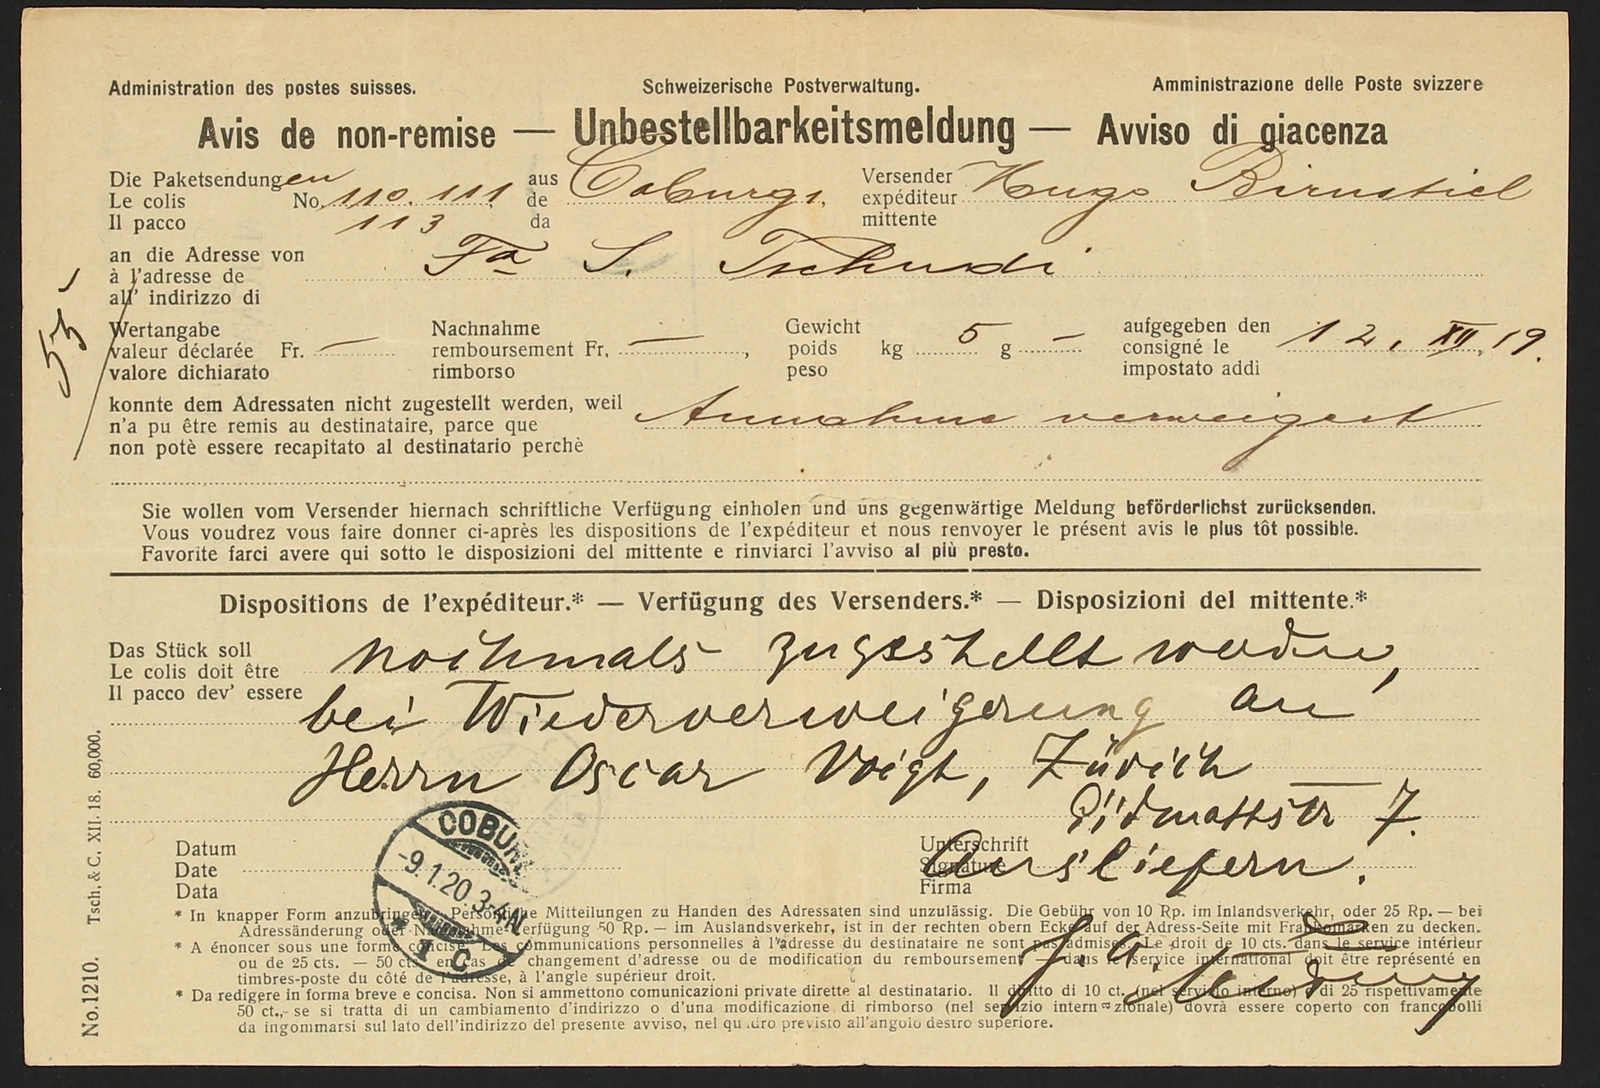 Administration des postes suisses. Schweizerische Postverwaltung. Amministrazione delle Poste svizzere
Avis de non-remise — Unbestellbarkeitsmeldung — Avviso di giacenza
Die Paketsendungen aus Versender
Le colis No. 110. 111 de Coburg 1. expéditeur Hugo Birnstiel
Il pacco 113 da mittente
an die Adresse von
à l'adresse de Fa S. Tschudi
all' indirizzo di
55
Wertangabe Nachnahme Gewicht aufgegeben den
valeur déclarée Fr. — remboursement Fr. —, poids kg 5 g — consigné le 12. XII. 19.
valore dichiarato rimborso peso impostato addì
konnte dem Adressaten nicht zugestellt werden, weil Annahme verweigert
n'a pu être remis au destinataire, parce que
non potè essere recapitato al destinatario perchè
Sie wollen vom Versender hiernach schriftliche Verfügung einholen und uns gegenwärtige Meldung beförderlichst zurücksenden.
Vous voudrez vous faire donner ci-après les dispositions de l'expéditeur et nous renvoyer le présent avis le plus tôt possible.
Favorite farci avere qui sotto le disposizioni del mittente e rinviarci l'avviso al più presto.
Dispositions de l'expéditeur.* — Verfügung des Versenders.* — Disposizioni del mittente.*
Das Stück soll
Le colis doit être nochmals zugestellt werden,
Il pacco dev' essere
bei Wiederverweigerung an
Herrn Oscar Voigt, Zürich
Südmattstr 7.
Ausliefern.
Datum Unterschrift
Date Signature
Data Firma
COBURG
-9.1.20.3-4N
* 1 C
* In knapper Form anzubringen. Persönliche Mitteilungen zu Handen des Adressaten sind unzulässig. Die Gebühr von 10 Rp. im Inlandsverkehr, oder 25 Rp. — bei
Adressänderung oder Nachnahmeverfügung 50 Rp. — im Auslandsverkehr, ist in der rechten obern Ecke auf der Adress-Seite mit Frankomarken zu decken.
* A énoncer sous une forme concise. Les communications personnelles à l'adresse du destinataire ne sont pas admises. Le droit de 10 cts. dans le service intérieur
ou de 25 cts. — 50 cts. en cas de changement d'adresse ou de modification du remboursement — dans le service international doit être représenté en
timbres-poste du côté de l'adresse, à l'angle supérieur droit.
* Da redigere in forma breve e concisa. Non si ammettono comunicazioni private dirette al destinatario. Il diritto di 10 ct. (nel servizio interno) e di 25 rispettivamente
50 ct., se si tratta di un cambiamento d'indirizzo o d'una modificazione di rimborso (nel servizio internazionale) dovrà essere coperto con francobolli
da ingommarsi sul lato dell'indirizzo del presente avviso, nel quadro previsto all'angolo destro superiore.
No. 1210. Tsch. & C. XII. 18. 60,000.